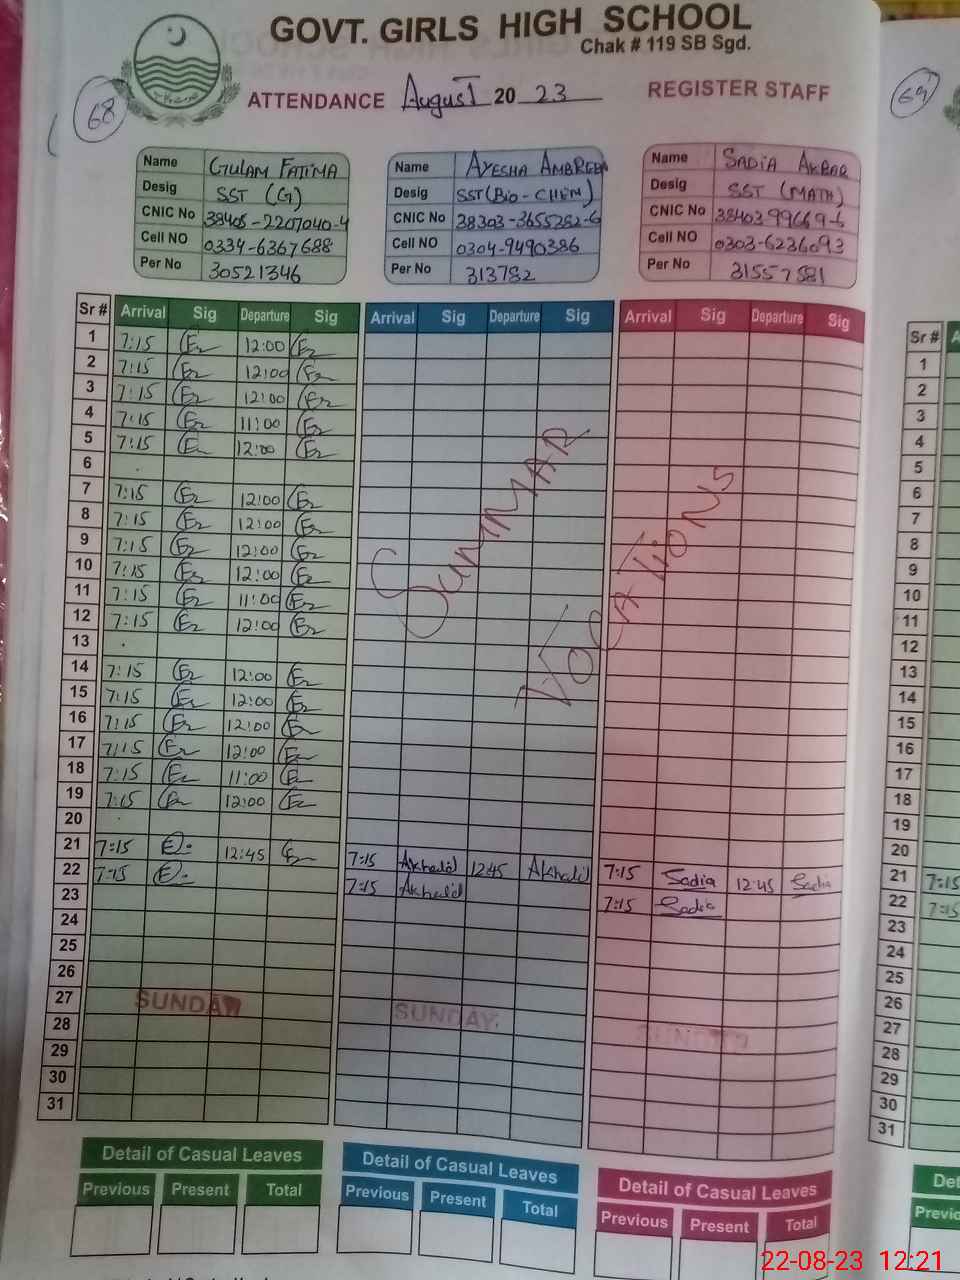 GOVT. GIRLS HIGH SCHOOL
Chak # 119 SB Sgd.
68
ATTENDANCE August 20 23 REGISTER STAFF
69
Name GULAM FATIMA
Desig SST (G)
CNIC No 38405-2207040-4
Cell NO 0334-6367688
Per No 30521346
Name AYESHA AMBREEN
Desig SST (Bio-CHEM)
CNIC No 38303-3655282-6
Cell NO 0304-9490386
Per No 313782
Name SADIA AKBAR
Desig SST (MATH)
CNIC No 38403 99669-6
Cell NO 0303-6236093
Per No 31557581
Sr # Arrival Sig Departure Sig Arrival Sig Departure Sig Arrival Sig Departure Sig Sr #
1 7:15 12:00 1
2 7:15 12:00 2
3 7:15 12:00 3
4 7:15 11:00 4
5 7:15 12:00 5
6 6
7 7:15 12:00 7
8 7:15 12:00 8
9 7:15 12:00 9
10 7:15 12:00 10
11 7:15 11:00 11
12 7:15 12:00 12
13 13
14 7:15 12:00 14
15 7:15 12:00 15
16 7:15 12:00 16
17 7:15 12:00 17
18 7:15 11:00 18
19 7:15 12:00 19
20 20
21 7:15 12:45 7:15 Akhalid 12:45 Akhalid 7:15 Sadia 12:45 Sadia 21 7:15
22 7:15 7:15 Akhalid 7:15 Sadia 22 7:15
23 23
24 24
25 25
26 26
27 SUNDAY SUNDAY SUNDAY 27
28 28
29 29
30 30
31 31
SUMMAR
VOCATIONS
Detail of Casual Leaves
Previous Present Total
Detail of Casual Leaves
Previous Present Total
Detail of Casual Leaves
Previous Present Total
22-08-23 12:21